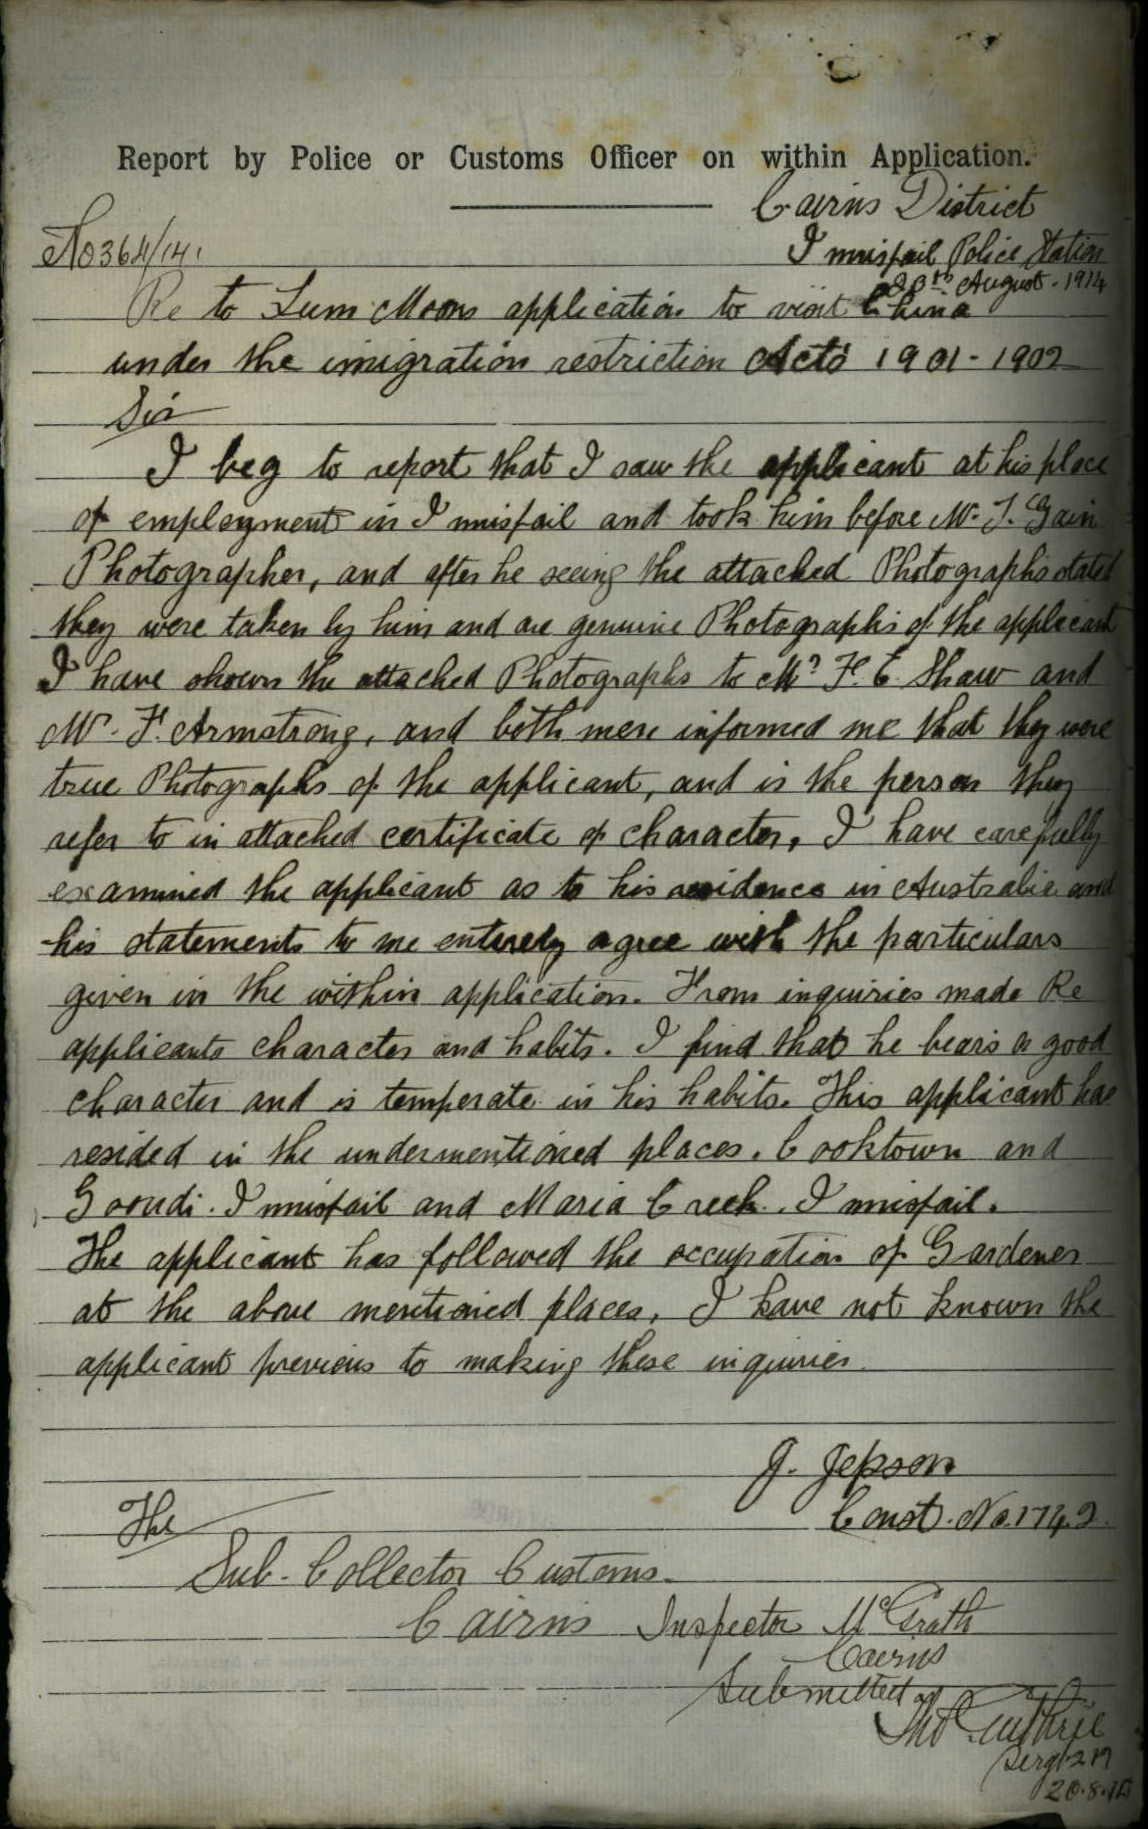 Report by Police or Customs Officer on within Application.
Cairns District
No 364/14.
Innisfail Police Station
20th August. 1914
Re to Lum Moons application to visit China
under the imigration restriction Acts 1901-1902
Sir
I beg to report that I saw the applicant at his place
of employment in Innisfail and took him before Mr. J. Gain
Photographer, and after he seeing the attached Photographs stated
they were taken by him and are genuine Photographs of the applicant
I have shown the attached Photographs to Mr. F. E. Shaw and
Mr. F. Armstrong, and both men informed me that they were
true Photographs of the applicant, and is the person they
refer to in attached certificate of character, I have carefully
examined the applicant as to his residence in Australia and
his statements to me entirely agree with the particulars
given in the within application. From inquiries made Re
applicants character and habits. I find that he bears a good
character and is temperate in his habits. This applicant has
resided in the undermentioned places. Cooktown and
Goondi. Innisfail and Maria Creek. Innisfail.
The applicant has followed the occupation of Gardener
at the above mentioned places, I have not known the
applicant previous to making these inquiries.
J. Jepson
Const. No. 1742.
The
Sub-Collector Customs.
Cairns
Inspector McGrath
Cairns
Submitted
Thos Guthrie
Sergt 217
20.8.14